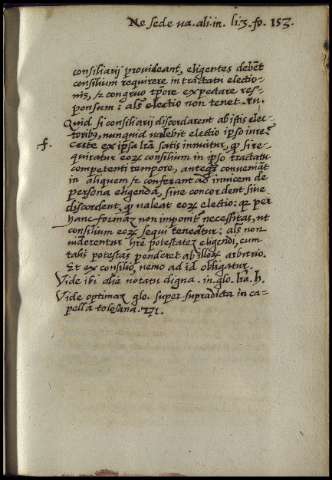 No sede va. ali. in. li3. fo. 153.
consiliarij provideant, eligentes debēt
consilium requirere in tractatu electio-
nis, & congruo tp̄ore expectare res-
ponsum: als̄ electio non tenet. in.
Quid si consiliarij discordarent ab istis elec-
toribꝰ, nunquid valebit electio ipso iure?
f. Certe ex ipsa lr̄a satis innuitur, ꝙ si re-
quiratur eorꝫ consilium in ipso tractatu
competenti tempore, anteqꝫ conveniāt
in aliquem, & conferant ad invicem de
persona eligenda, sive concordent sive
discordent, ꝙ valeat eorꝫ electio: qꝫ per
hanc formaꝫ non imponit̄ necessitas, ut
consilium eorꝫ sequi teneātur: als̄ non
viderentur h̄re potestateꝫ eligendi, cum
talis potestas penderet ab illorꝫ arbitrio.
Et ex consilio, nemo ad id obligatur.
Vide ibi alia notatu digna. in. glo. lr̄a. h.
Vide optimaꝫ glo. super supradicta in ca-
pella tolosana. 171.